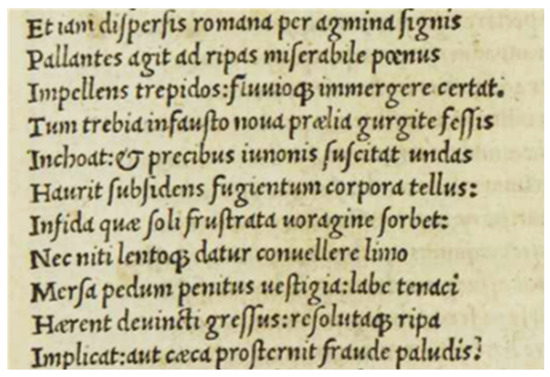 Et iam disperſis romana per agmina ſignis
Pallantes agit ad ripas miſerabile pœnus
Impellens trepidos:fluuioqꝫ immergere certat.
Tum trebia infauſto noua prælia gurgite feſſis
Inchoat:& precibus iunonis ſuſcitat undas
Haurit ſubſidens fugientum corpora tellus:
Infida quæ ſoli fruſtrata uoragine ſorbet:
Nec niti lentoqꝫ datur conuellere limo
Merſa pedum penitus ueſtigia:labe tenaci
Hærent deuincti greſſus:reſolutaqꝫ ripa
Implicat:aut cæca proſternit fraude paludis?